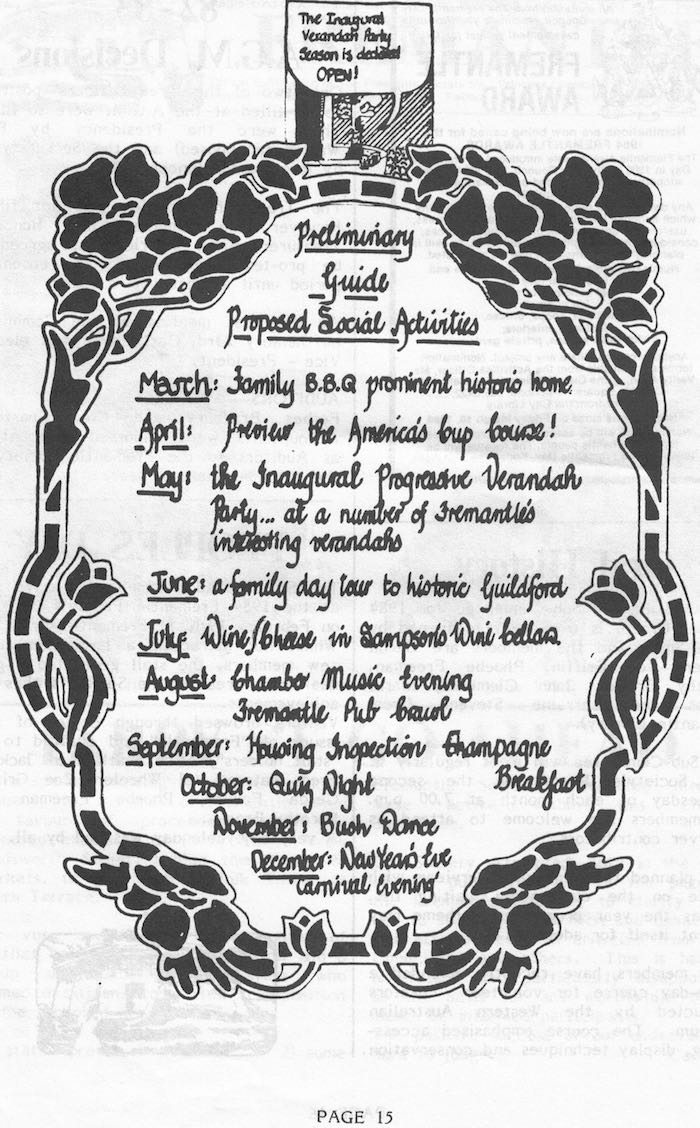 The Inaugural
Verandah Party
Season is declared
OPEN!
Preliminary
Guide
Proposed Social Activities
March: Family B.B.Q prominent historic home.
April: Preview the America's Cup Course!
May: the Inaugural Progressive Verandah
Party... at a number of Fremantle's
interesting verandahs
June: a family day tour to historic Guildford
July: Wine/Cheese in Sampson's Wine Cellars.
August: Chamber Music Evening
Fremantle Pub Crawl
September: Housing Inspection Champagne
Breakfast
October: Quiz Night
November: Bush Dance
December: New Year's Eve
Carnival Evening
PAGE 15